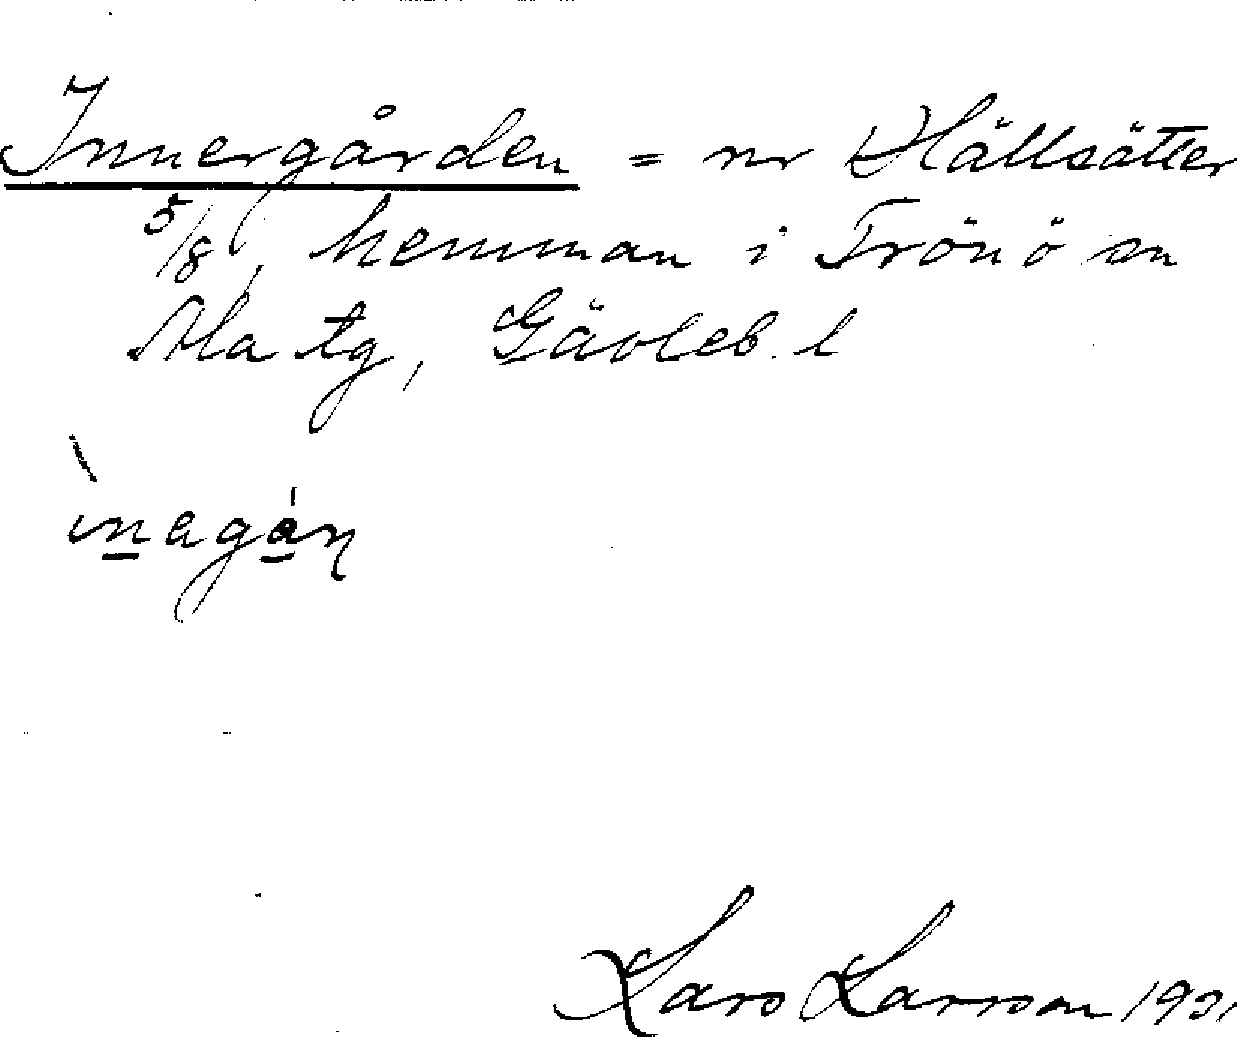 Innergården = nr Hällsätter
5/8, hemman i Trönö sn
Ala tg, Gävleb. l
ìnagán
Lars Larsson 1931